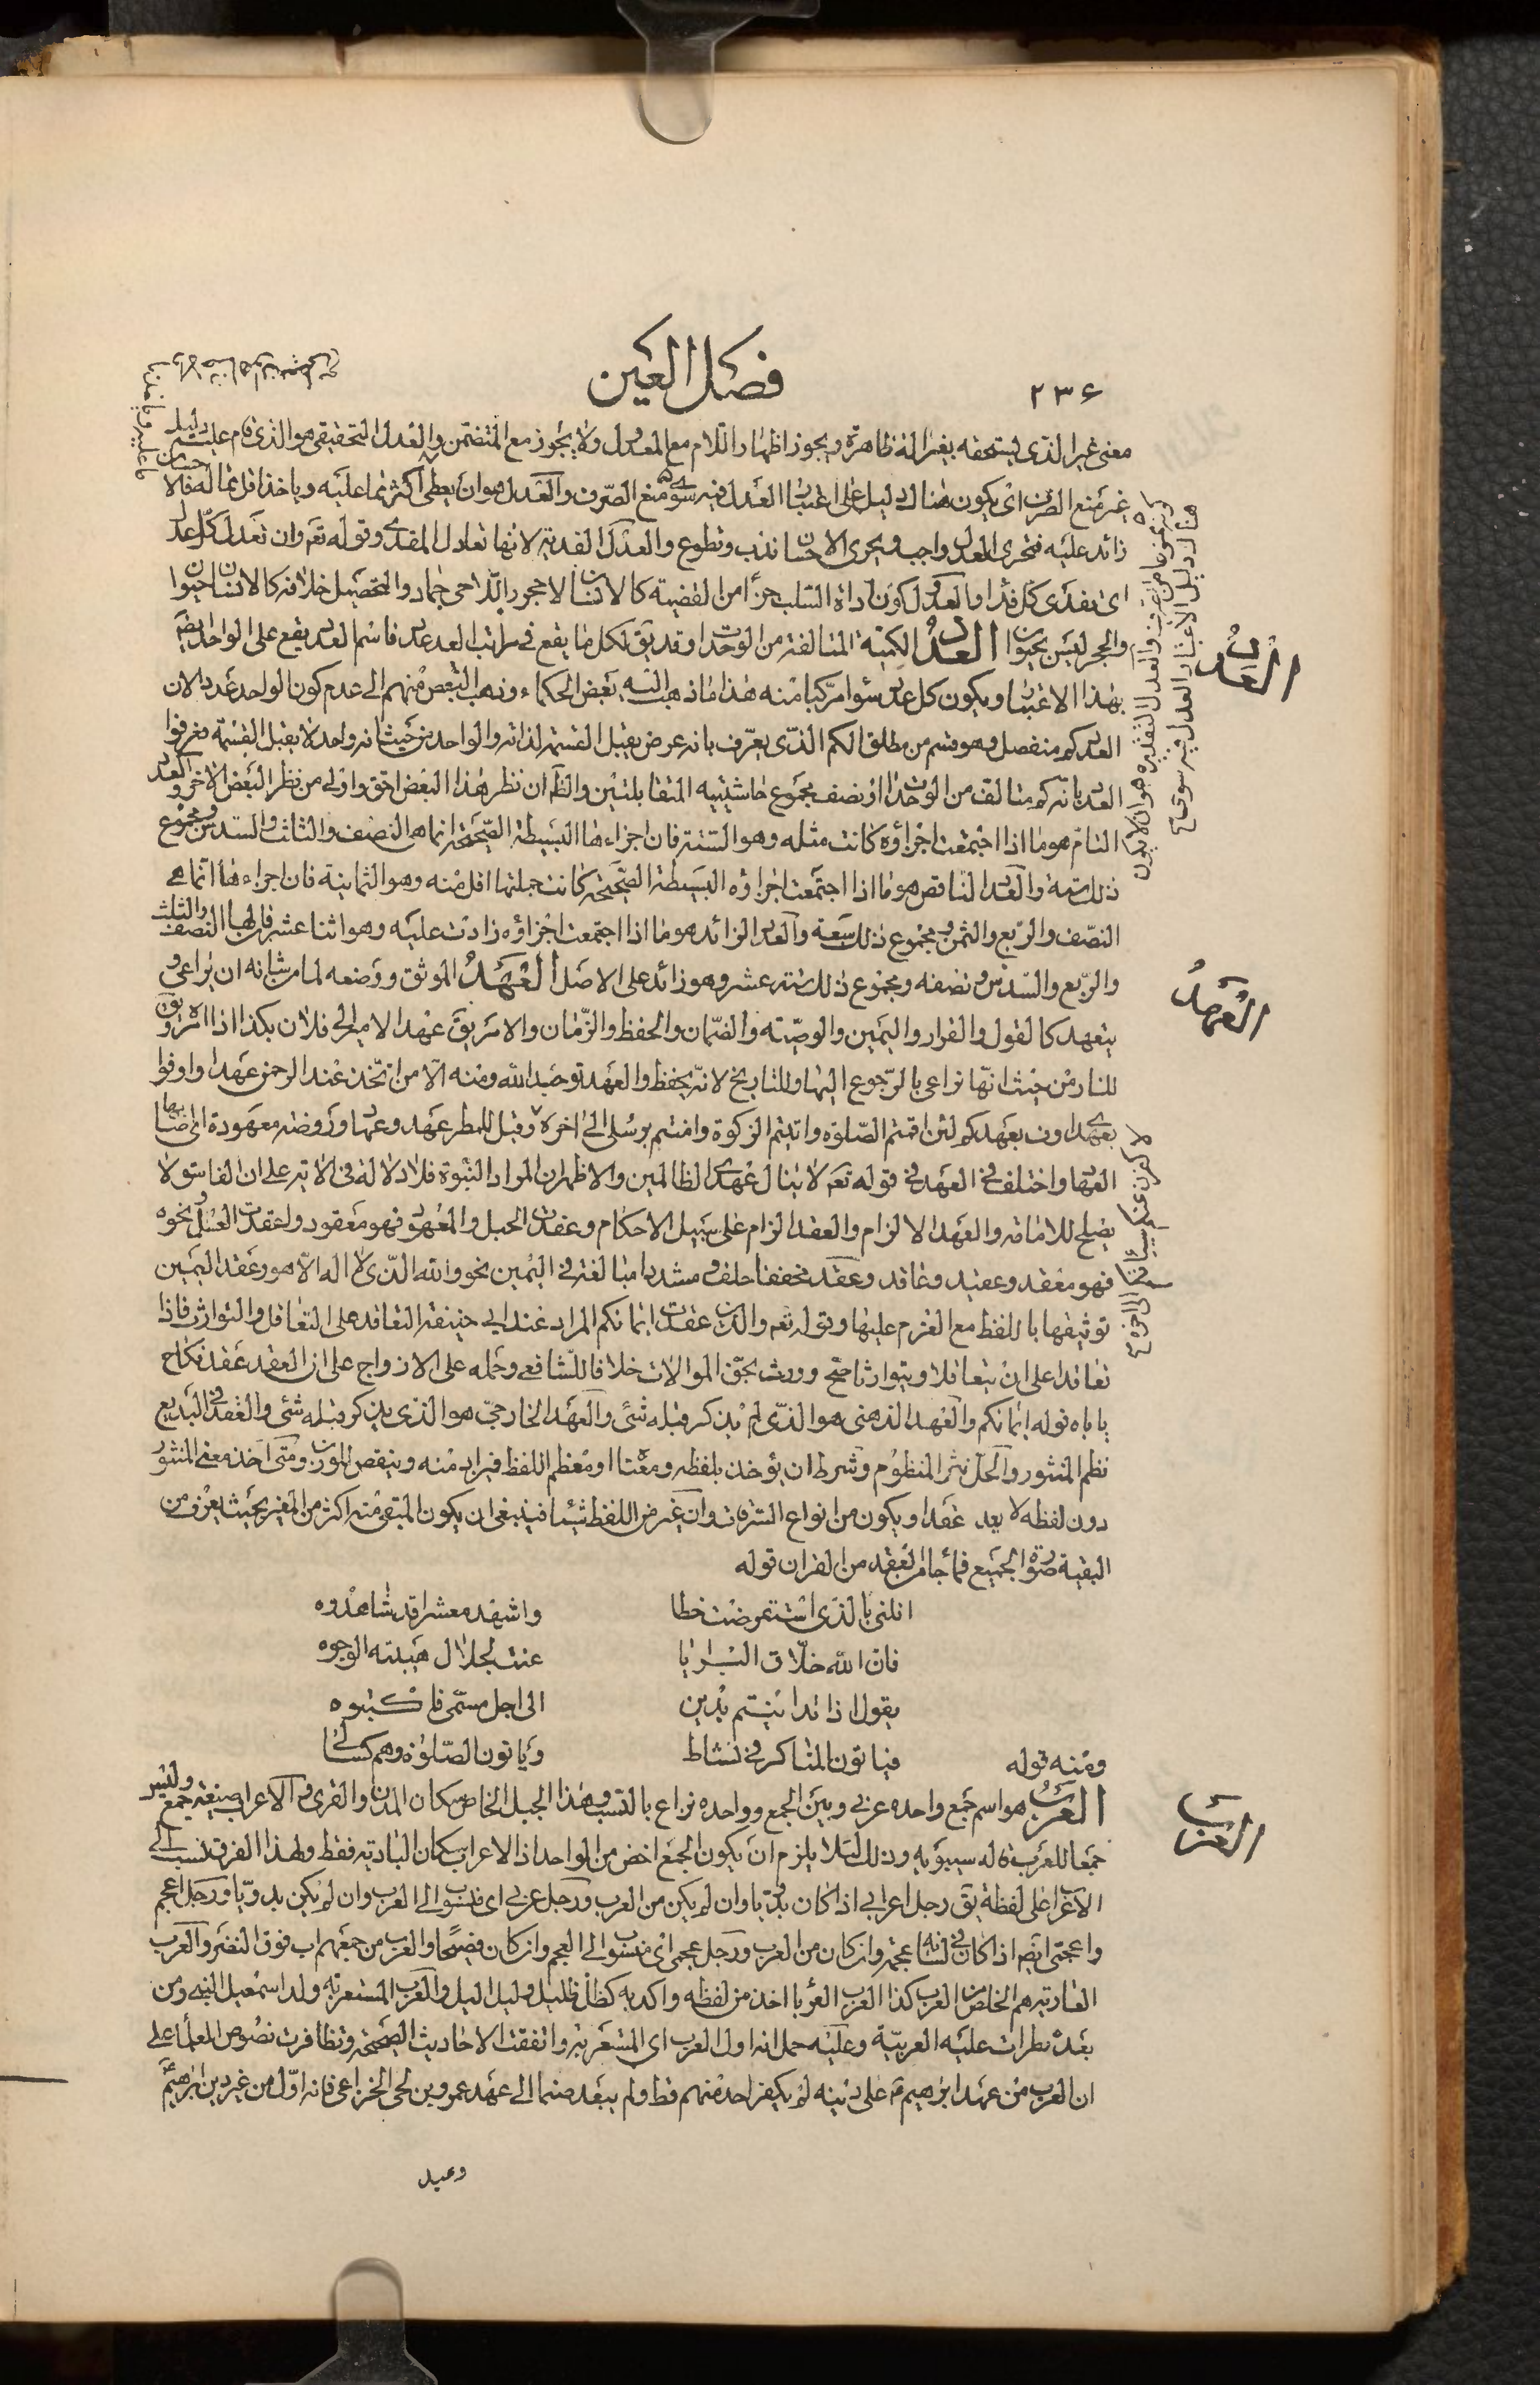 ٢٣٤
فصل العين
معنى غير الذي يستحقه بغير آلة ظاهرة ويجوز اظهار اللام مع المعدول ولا يجوز مع المتضمن والعدل التحقيقي هو الذي قام عليه دليل
غير منع الصرف اى يكون هناك دليل على اعتبار العدل فيه سوى منع الصرف والعدل هو ان يعطى اكثر مما عليه وياخذ اقل مما له فالاحسان
زائد عليه فتحرى العدل واجب وتحرى الاحسان ندب وتطوع والعدل الفدية لانها تعادل المفدى وقوله تع وان تعدل كل عدل
اى تفدى كل فداء والعدول كون اداة السلب جزأ من القضية كالانسان لا حجر واللاحى جماد والتحصيل خلافه كالانسان حيوان
والحجر ليس بحيوان العدد الكمية المتالفة من الوحدات وقد يق لكل ما يقع فى مراتب العد عدد فاسم العدد يقع على الواحد ايضا
بهذا الاعتبار ويكون كل عدد سواه مركبا منه هذا ما ذهب اليه بعض الحكماء وذهب البعض منهم الى عدم كون الواحد عددا لان
العدد كم منفصل وهو قسم من مطلق الكم الذي يعرف بانه عرض يقبل القسمة لذاته والواحد من حيث انه واحد لا يقبل القسمة فعرفوا
العدد بانه كم متالف من الوحدات او نصف مجموع حاشيتيه المتقابلتين والظ ان نظر هذا البعض احق واولى من نظر البعض الاخر والعدد
التام هو ما اذا اجتمعت اجزاؤه كانت مثله وهو الستة فان اجزاءها البسيطة الصحيحة انما هى النصف والثلث والسدس ومجموع
ذلك ستة والعدد الناقص هو ما اذا اجتمعت اجزاؤه البسيطة الصحيحة كانت جملتها اقل منه وهو الثمانية فان اجزاءها انما هى
النصف والربع والثمن ومجموع ذلك سبعة والعدد الزائد هو ما اذا اجتمعت اجزاؤه زادت عليه وهو اثنا عشر فان لها النصف والثلث
والربع والسدس ونصفه ومجموع ذلك ستة عشر وهو زائد على الاصل العهد الموثق ووضعه لما من شانه ان يراعى و
يتعهد كالقول والقرار واليمين والوصية والضمان والحفظ والزمان والامر يق عهد الامير الى فلان بكذا اذا امره ويق
للدار من حيث انها تراعى بالرجوع اليها وللتاريخ لانه يحفظ والعهد توحيد الله ومنه الا من اتخذ عند الرحمن عهدا واوفوا
بعهدى اوف بعهدكم لئن اقمتم الصلوة واتيتم الزكوة وامنتم برسلى الى اخره وقيل للمطر عهد وعهاد وروضة معهودة اى اصابها
العهاد واختلف فى العهد فى قوله تع لا ينال عهدى الظالمين والاظهر ان المراد النبوة فلا دلالة فى الاية على ان الفاسق لا
يصلح للامامة والعهد الالزام والعقد الزام على سبيل الاحكام وعقدت الحبل والعهد فهو معقود واعقدت العسل ونحوه
فهو معقد وعقيد وعاقد وعقد مخففا حلف ومشددا مبالغة فى اليمين نحو والله الذي لا اله الا هو وعقد اليمين
توثيقها باللفظ مع العزم عليها وقوله تع والذين عقدت ايمانكم المراد عند ابى حنيفة التعاقد على التعاقل والتوارث فاذا
تعاقدا على ان يتعاقلا ويتوارثا صح وورث بحق الموالات خلافا للشافعى وحمله على الازواج على ان العقد عقد نكاح
ياباه قوله ايمانكم والعهد الذهنى هو الذي لم يذكر قبله شئ والعهد الخارجى هو الذي يذكر قبله شئ والعقد فى البديع
نظم المنثور والحل نثر المنظوم وشرط ان يؤخذ بلفظه ومعناه او معظم اللفظ فيزاد منه وينقص للوزن ومتى اخذ معنى المنثور
دون لفظه لا يعد عقدا ويكون من انواع السرقات وان غير من اللفظ شيئا فينبغى ان يكون المتبقى منه اكثر من المغير بحيث يعرف من
البقية صورة الجميع فما جاء من العقد من القران قوله
انلنى بالذي استقرضت خطا واشهد معشرا قد شاهدوه
فان الله خلاق البرايا عنت لجلال هيبته الوجوه
يقول اذا تداينتم بدين الى اجل مسمى فاكتبوه
ومنه قوله فياتون المناكر فى نشاط وياتون الصلوة وهم كسالى
العرب هو اسم جمع واحده عربى وبين الجمع وواحده نزاع بالنسبة وهذا الجيل الخاص سكان المدن والقرى والاعراب صيغة جمع وليس
جمعا للعرب قاله سيبويه وذلك لئلا يلزم ان يكون الجمع اخص من الواحد اذ الاعراب سكان البادية فقط ولهذا الفرق نسب الى
الاعراب على لفظه يق رجل اعرابى اذا كان بدويا وان لم يكن من العرب ورجل عربى اى منسوب الى العرب وان لم يكن بدويا ورجل اعجم
واعجمى ايضا اذا كان فى لسانه عجمة وان كان من العرب ورجل عجمى اى منسوب الى العجم وان كان فصيحا والعرب من جمعهم اب فوق النضر والعرب
العاربة هم الخلص من العرب كذا العرب العرباء اخذ من لفظه واكد به كظل ظليل وليل اليل والعرب المستعربة ولد اسمعيل النبى ومن
بعده طرأت عليه العربية وعليه حمل انه اول العرب اى المستعربة واتفقت الاحاديث الصحيحة وتظافرت نصوص العلماء على
ان العرب من عهد ابرهيم ع على دينه لم يكفر احد منهم قط ولم يعبد صنما الى عهد عمرو بن لحى الخزاعى فانه اول من غير دين ابرهيم
وعبد
العدد
العهد
العرب